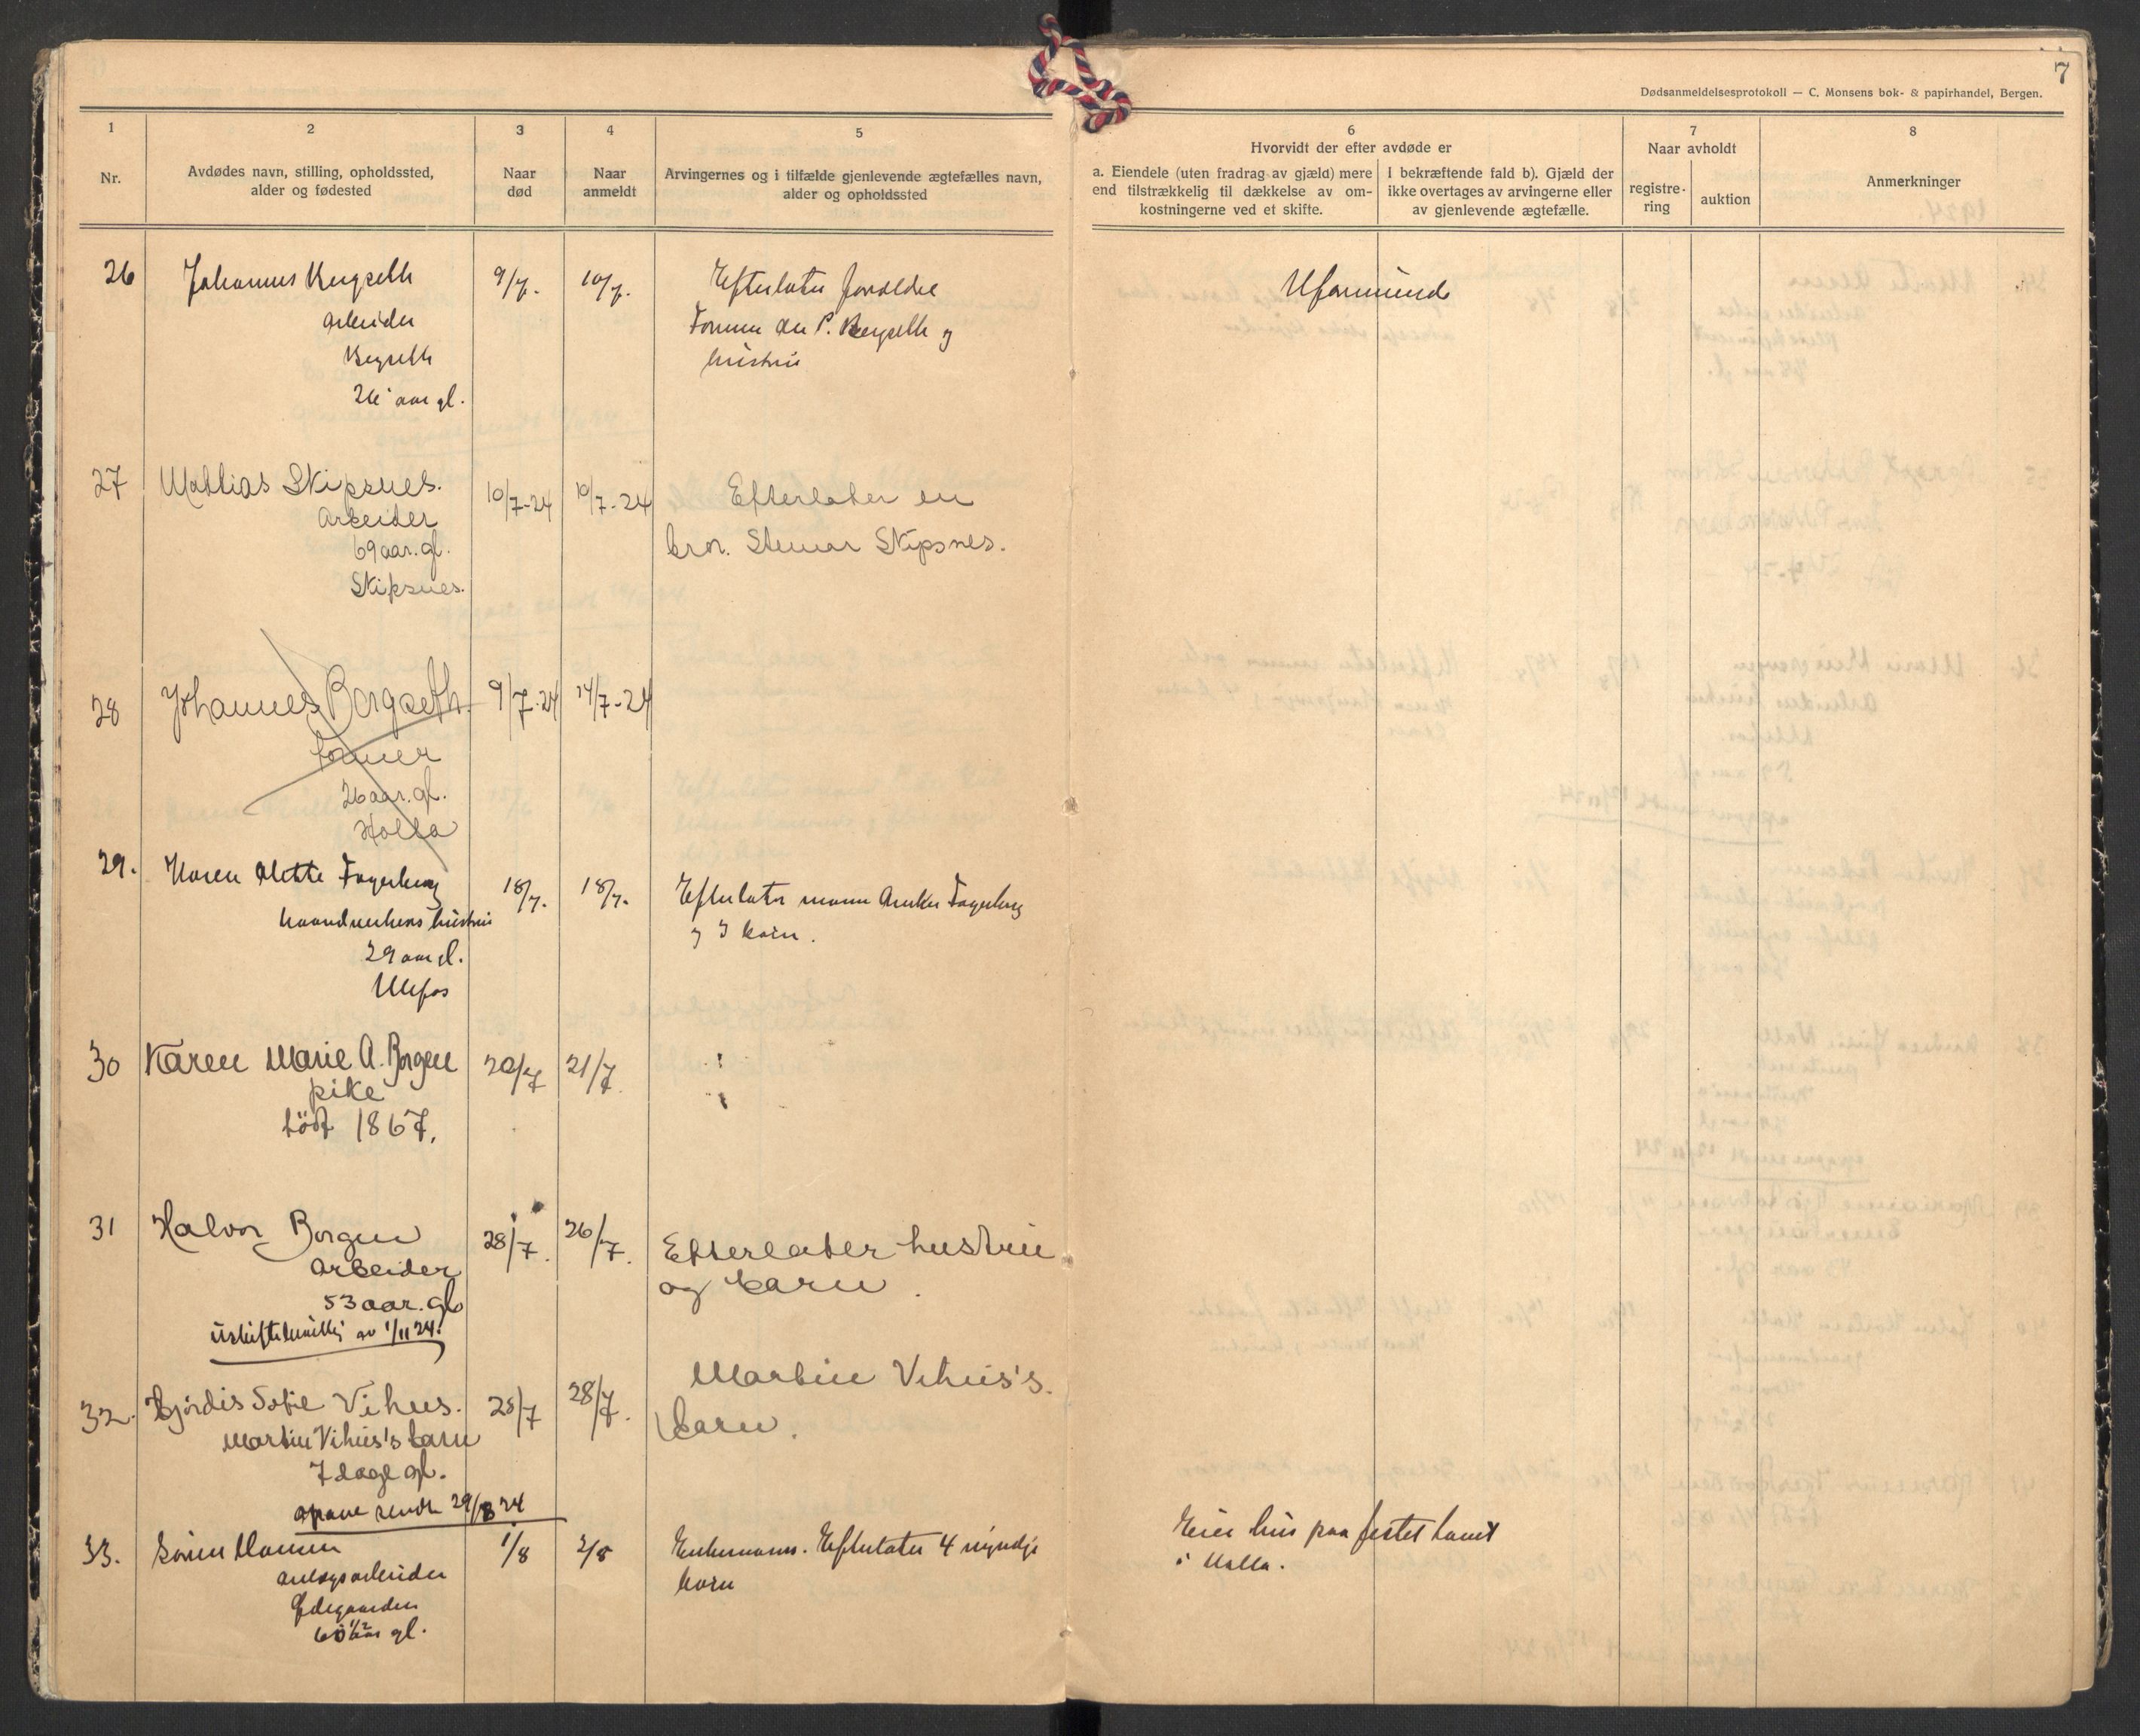 7
Dødsanmeldelsesprotokoll — C. Monsens bok- & papirhandel, Bergen.
1
2
3
4
5
6
7
8
Nr.
Avdødes navn, stilling, opholdssted,
alder og fødested
Naar
død
Naar
anmeldt
Arvingernes og i tilfælde gjenlevende ægtefælles navn,
alder og opholdssted
Hvorvidt der efter avdøde er
a. Eiendele (uten fradrag av gjæld) mere
end tilstrækkelig til dækkelse av om-
kostningerne ved et skifte.
I bekræftende fald b). Gjæld der
ikke overtages av arvingerne eller
av gjenlevende ægtefælle.
Naar avholdt
registre-
ring
auktion
Anmerkninger
26 Johannes Bergseth 9/7. 10/7. Efterlater forældre Uformuende
arbeider Tømmer P. Bergseth og
Bergseth hustru
26 aar gl.
27 Mathias Skipsnes. 10/7-24 10/7-24 Efterlater en
Arbeider bror. Steinar Skipsnes.
69 aar. gl.
Skipsnes.
28 Johannes Bergseth. 9/7-24 14/7-24
26 aar. gl.
Holla
29. Karen Alette Fagerberg 18/7. 18/7. Efterlater mann Fagerberg
haandverkers hustru og 3 barn.
29 aar gl.
Ulefos
30 Karen Marie A. Borgen 20/7 21/7.
pike
född 1867.
31 Halvor Borgen 28/7. 26/7. Efterlater hustru
Arbeider og barn.
53 aar. gl
av 1/11 24.
32. Hjördis Sofie Vihus. 28/7 28/7. Martin Vihus's.
Martin Vihus's barn barn.
7 dage gl.
opgave sendt 29/8 24
33. Sören Hansen 1/8 2/8 Enkemann. Efterlater 4 myndige Eier hus paa festet tomt
anlægsarbeider barn i Holla.
Ødegaarden
gl.